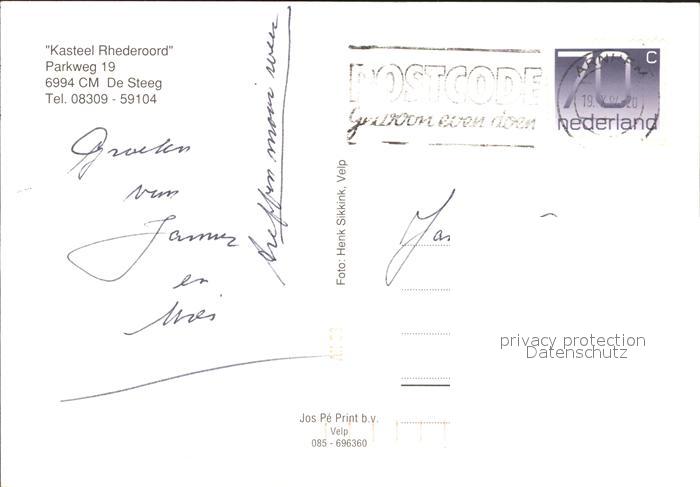 "Kasteel Rhederoord"
Parkweg 19
6994 CM De Steeg
Tel. 08309 - 59104
Groeten
van
en
treffen mooi weer
POSTCODE
Gewoon even doen
ARNHEM
70 c
nederland
Foto: Henk Sikkink, Velp
privacy protection
Datenschutz
Jos Pé Print b.v.
Velp
085 - 696360